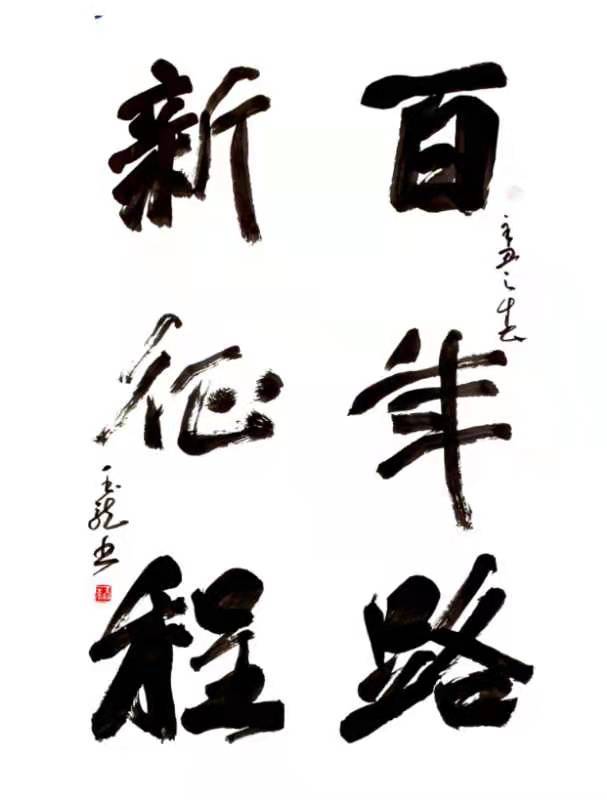 百年路
辛丑之春
新征程
玉龙书